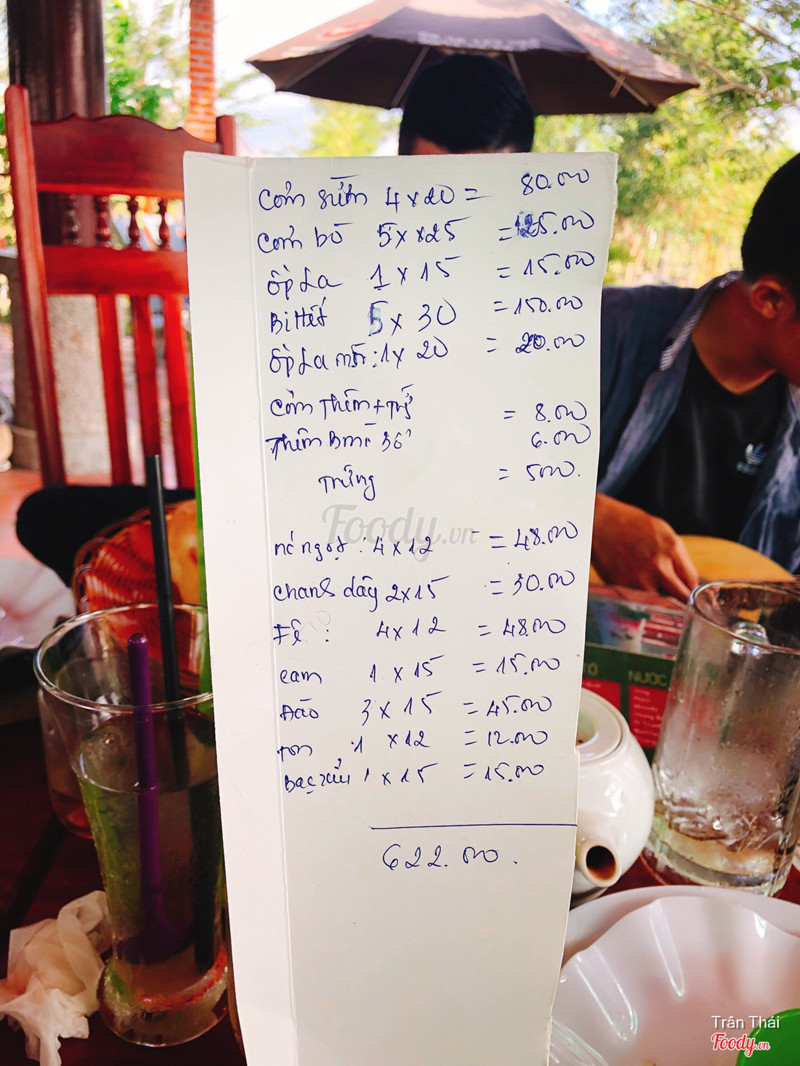 Cơm sườn 4 x 20 = 80.000
Cơm bò 5 x x25 = 125.000
Ốp La 1 x 15 = 15.000
Bittết 5 x 30 = 150.000
Ốp La mới : 1 x 20 = 20.000
Cơm Thêm + Trứ = 8.000
Thêm Bmì 36' 6.000
Trứng = 5000.
Foody.vn
nc ngọt : 4 x 12 = 48.000
chanh dây 2 x 15 = 30.000
Fê : 4 x 12 = 48.000
cam 1 x 15 = 15.000
Đào 3 x 15 = 45.000
1 x 12 = 12.000
Bạc xỉu 1 x 15 = 15.000
622.000.
NƯỚC
Trân Thái
Foody.vn